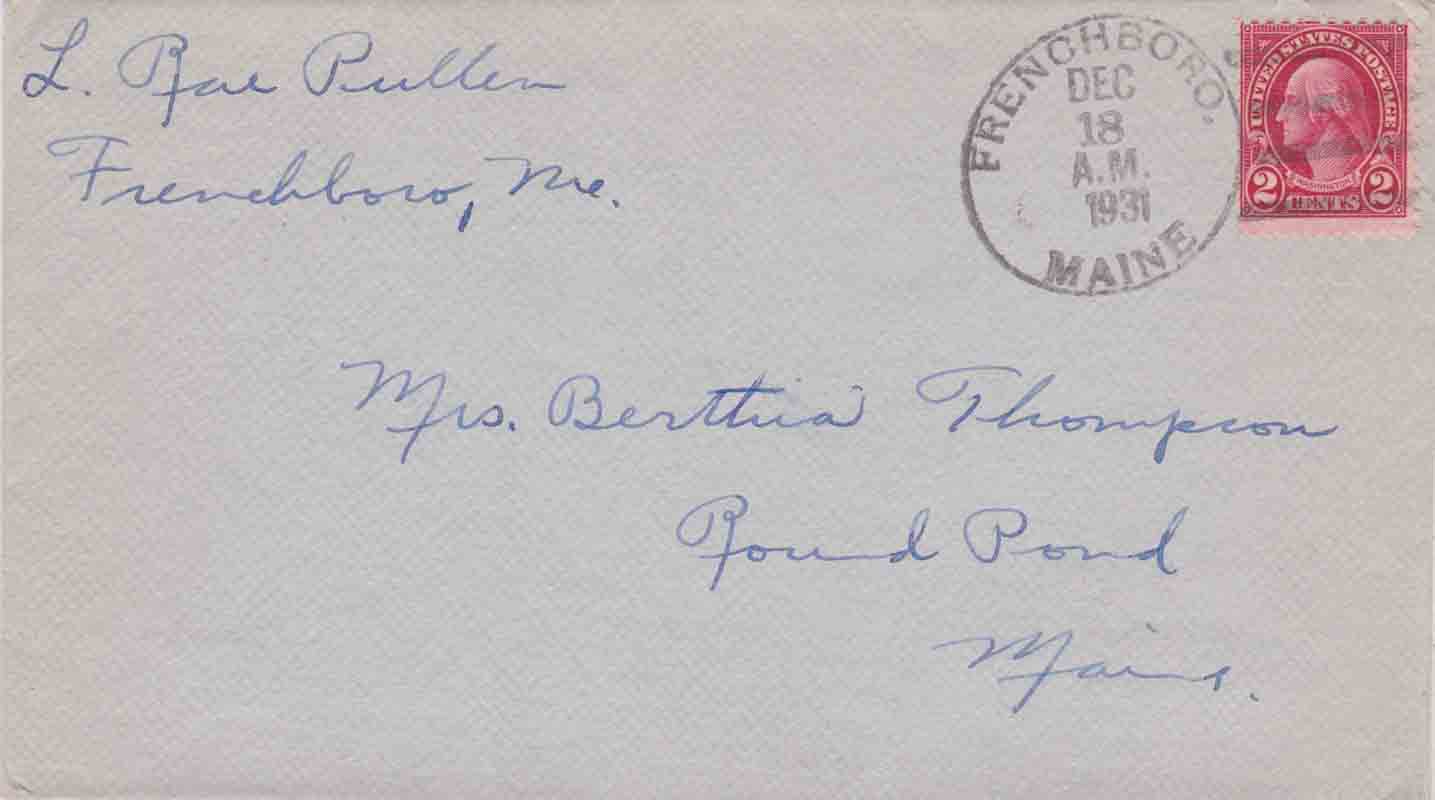 L. Rae Pullen
Frenchboro, Me.
FRENCHBORO.
DEC
18
A.M.
1931
MAINE
UNITED STATES POSTAGE
WASHINGTON
2 CENTS 2
Mrs. Berthia Thompson
Round Pond
Maine.